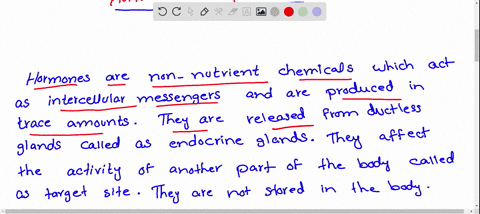 Hormones are non-nutrient chemicals which act
as intercellular messengers and are produced in
trace amounts. They are released from ductless
glands called as endocrine glands. They affect
the activity of another part of the body called
as target site. They are not stored in the body.